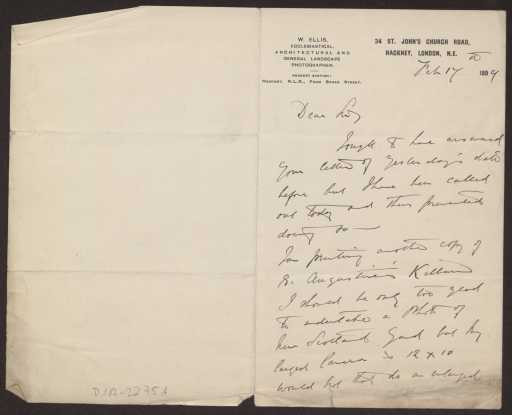 W. ELLIS,
ECCLESIASTICAL,
ARCHITECTURAL AND
GENERAL LANDSCAPE
PHOTOGRAPHER.
NEAREST STATION:
HACKNEY, N.L.R., FROM BROAD STREET.
34 ST. JOHN'S CHURCH ROAD,
HACKNEY, LONDON, N.E.
Feb 17th 1889
Dear Sir,
I ought to have answered
your letter of yesterday's date
before but I have been called
out today and thus prevented
doing so —
I am printing another copy of
St. Augustine's Kilburn
I should be only too glad
to undertake a photo of
New Scotland Yard but my
largest camera is 12 x 10
would not that do an enlarged